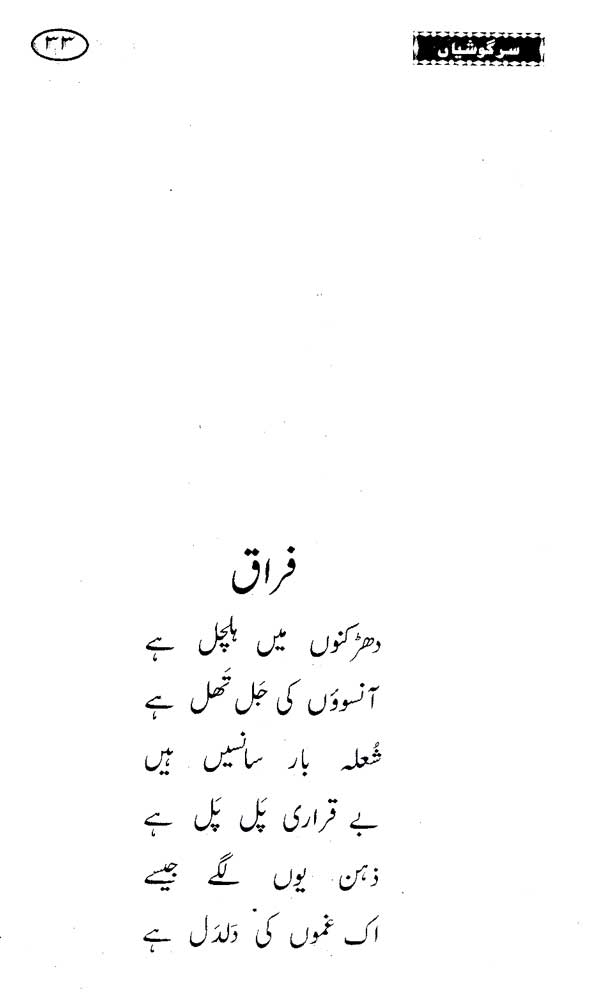 سرگوشیاں
۳۳
فراق
دھڑکنوں میں ہلچل ہے
آنسوؤں کی جَل تَھل ہے
شُعلہ بار سانسیں ہیں
بے قراری پَل پَل ہے
ذہن یوں لگے جیسے
اک غموں کی دَلدَل ہے